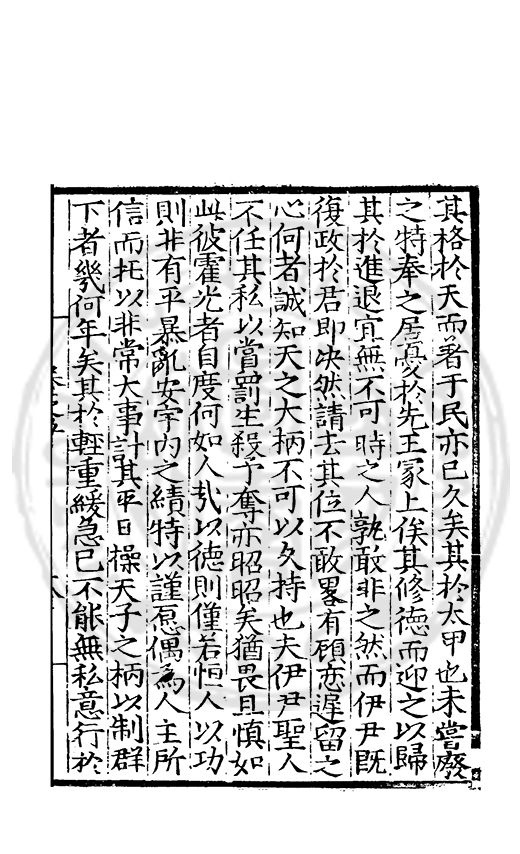 其格於天而著于民亦已久矣其於太甲也未嘗廢
之特奉之居憂於先王冢上俟其修德而迎之以歸
其於進退宜無不可時之人孰敢非之然而伊尹既
復政於君即决然請去其位不敢畧有顧恋遲留之
心何者誠知天之大柄不可以久持也夫伊尹聖人
不任其私以賞罰生殺予奪亦昭昭矣猶畏且慎如
此彼霍光者自度何如人哉以德則僅若恒人以功
則非有平暴亂安宇内之績特以謹愿偶為人主所
信而托以非常大事計其平日操天子之柄以制群
下者幾何年矣其於輕重緩急已不能無私意行於